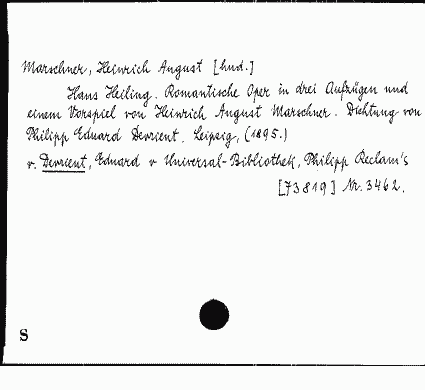 Marschner, Heinrich August [hnd.]
Hans Heiling. Romantische Oper in drei Aufzügen und
einem Vorspiel von Heinrich August Marschner. Dichtung von
Philipp Eduard Devrient. Leipzig, (1895.)
v. Devrient, Eduard v Universal-Bibliothek, Philipp Reclam's
[73819] Nr. 3462.
S